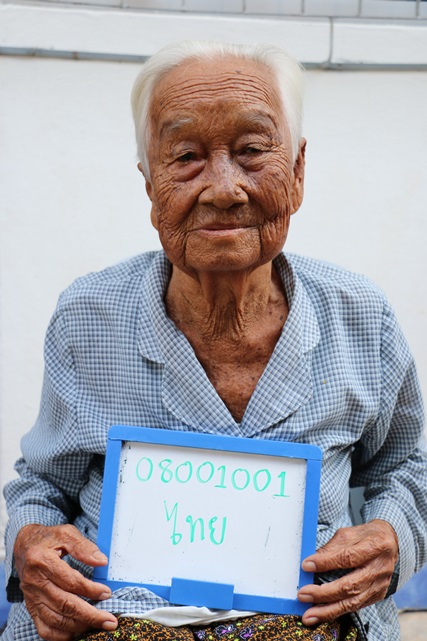 08001001
ไทย